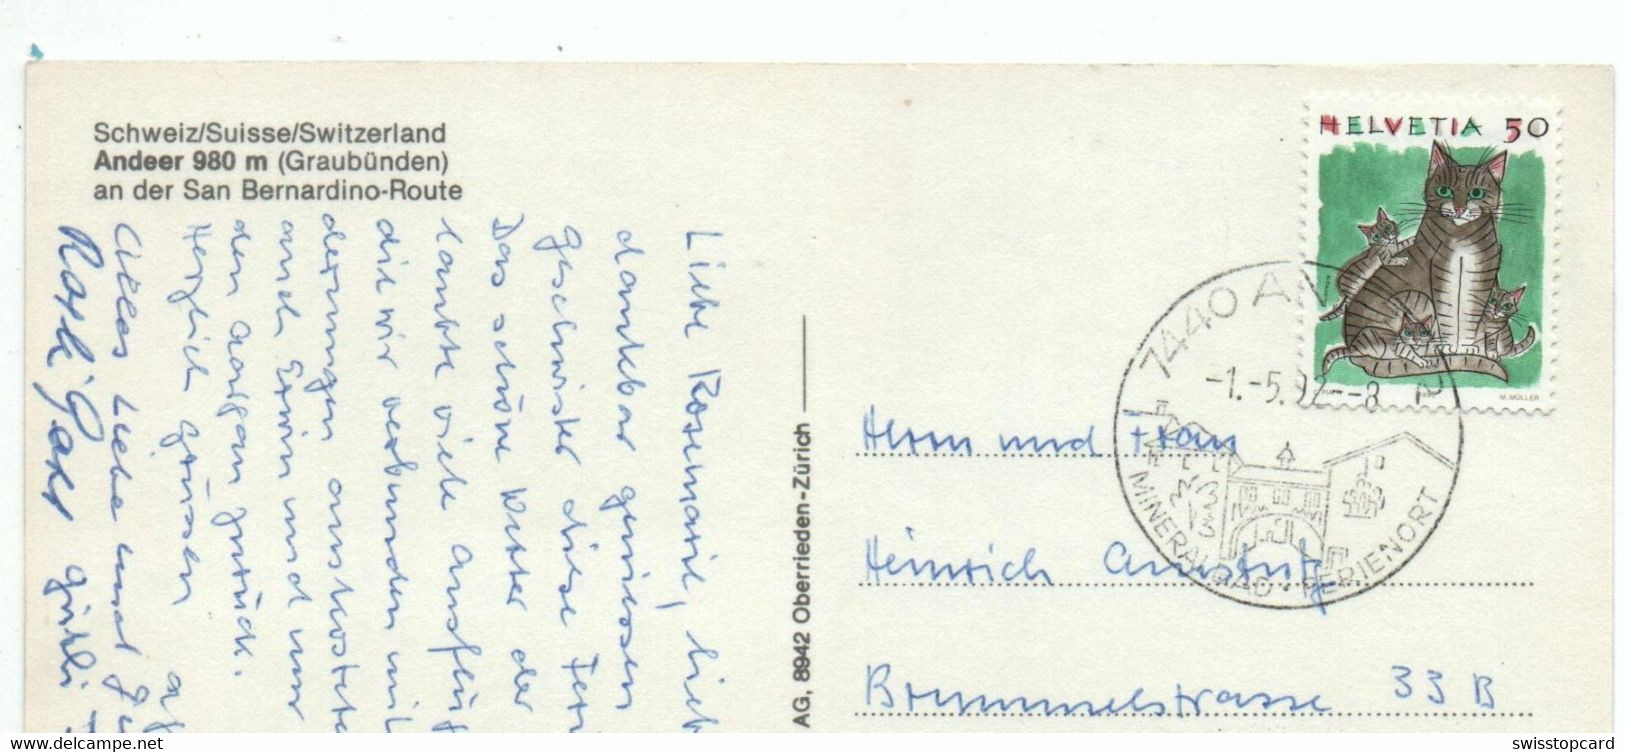 Schweiz/Suisse/Switzerland
Andeer 980 m (Graubünden)
an der San Bernardino-Route
Liebe Rosemarie, lieb
dankbar geniessen
Geschwister diese Feri
Das schöne Wetter der
laubte viele Ausflü
die wir verbunden mit
derungen auskoste
auch Erwin und
den zurück.
Herzlich grüssen
Alles Liebe und Gu
AG, 8942 Oberrieden-Zürich
HELVETIA 50
M. MÜLLER
7440 AN
-1.-5.92--8
MINERALBAD · FERIENORT
Herrn und Frau
Heinrich
Brummelstrasse 33 B
www.delcampe.net
swisstopcard